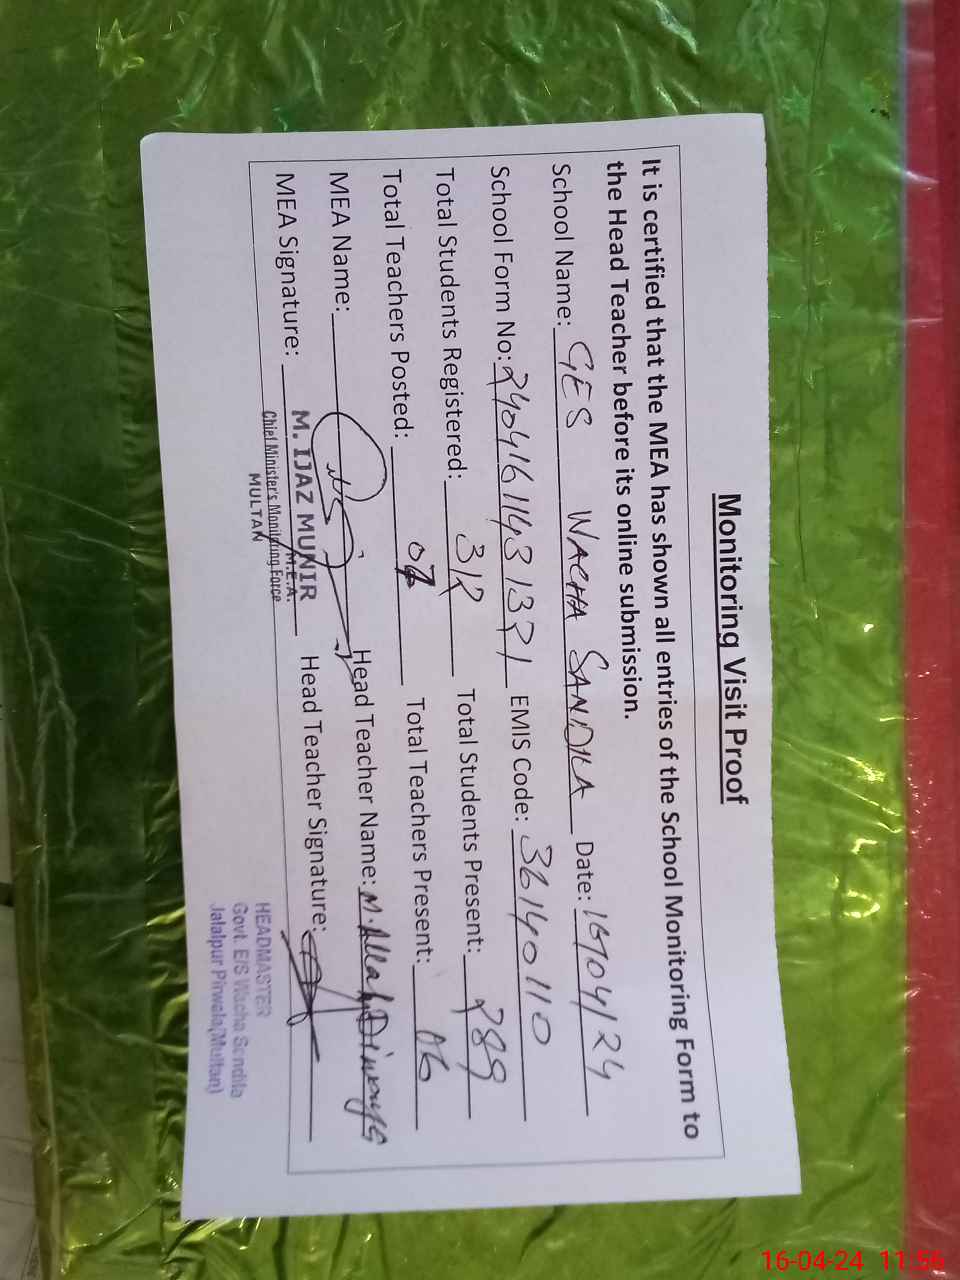 Monitoring Visit Proof
It is certified that the MEA has shown all entries of the School Monitoring Form to
the Head Teacher before its online submission.
School Name: GES WACHA SANDILA Date: 16/04/24
School Form No: EMIS Code: 36140110
Total Students Registered: Total Students Present: 289
Total Teachers Posted: Total Teachers Present: 06
MEA Name: Head Teacher Name: M. Allah
MEA Signature: Head Teacher Signature:
M. IJAZ MUNIR
M.E.A.
Chief Minister's Monitoring Force
MULTAN
HEADMASTER
Govt. E/S Wacha Sandila
Jalalpur Pirwala(Multan)
16-04-24 11:56